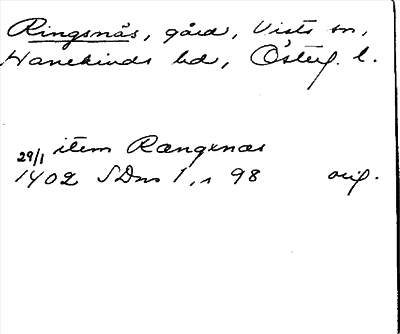 Ringsnäs, gård, Vists sn,
Hanekinds hd, Österg. l.
29/1 item Rængxnæs
1402 SDns 1, s 98 orig.